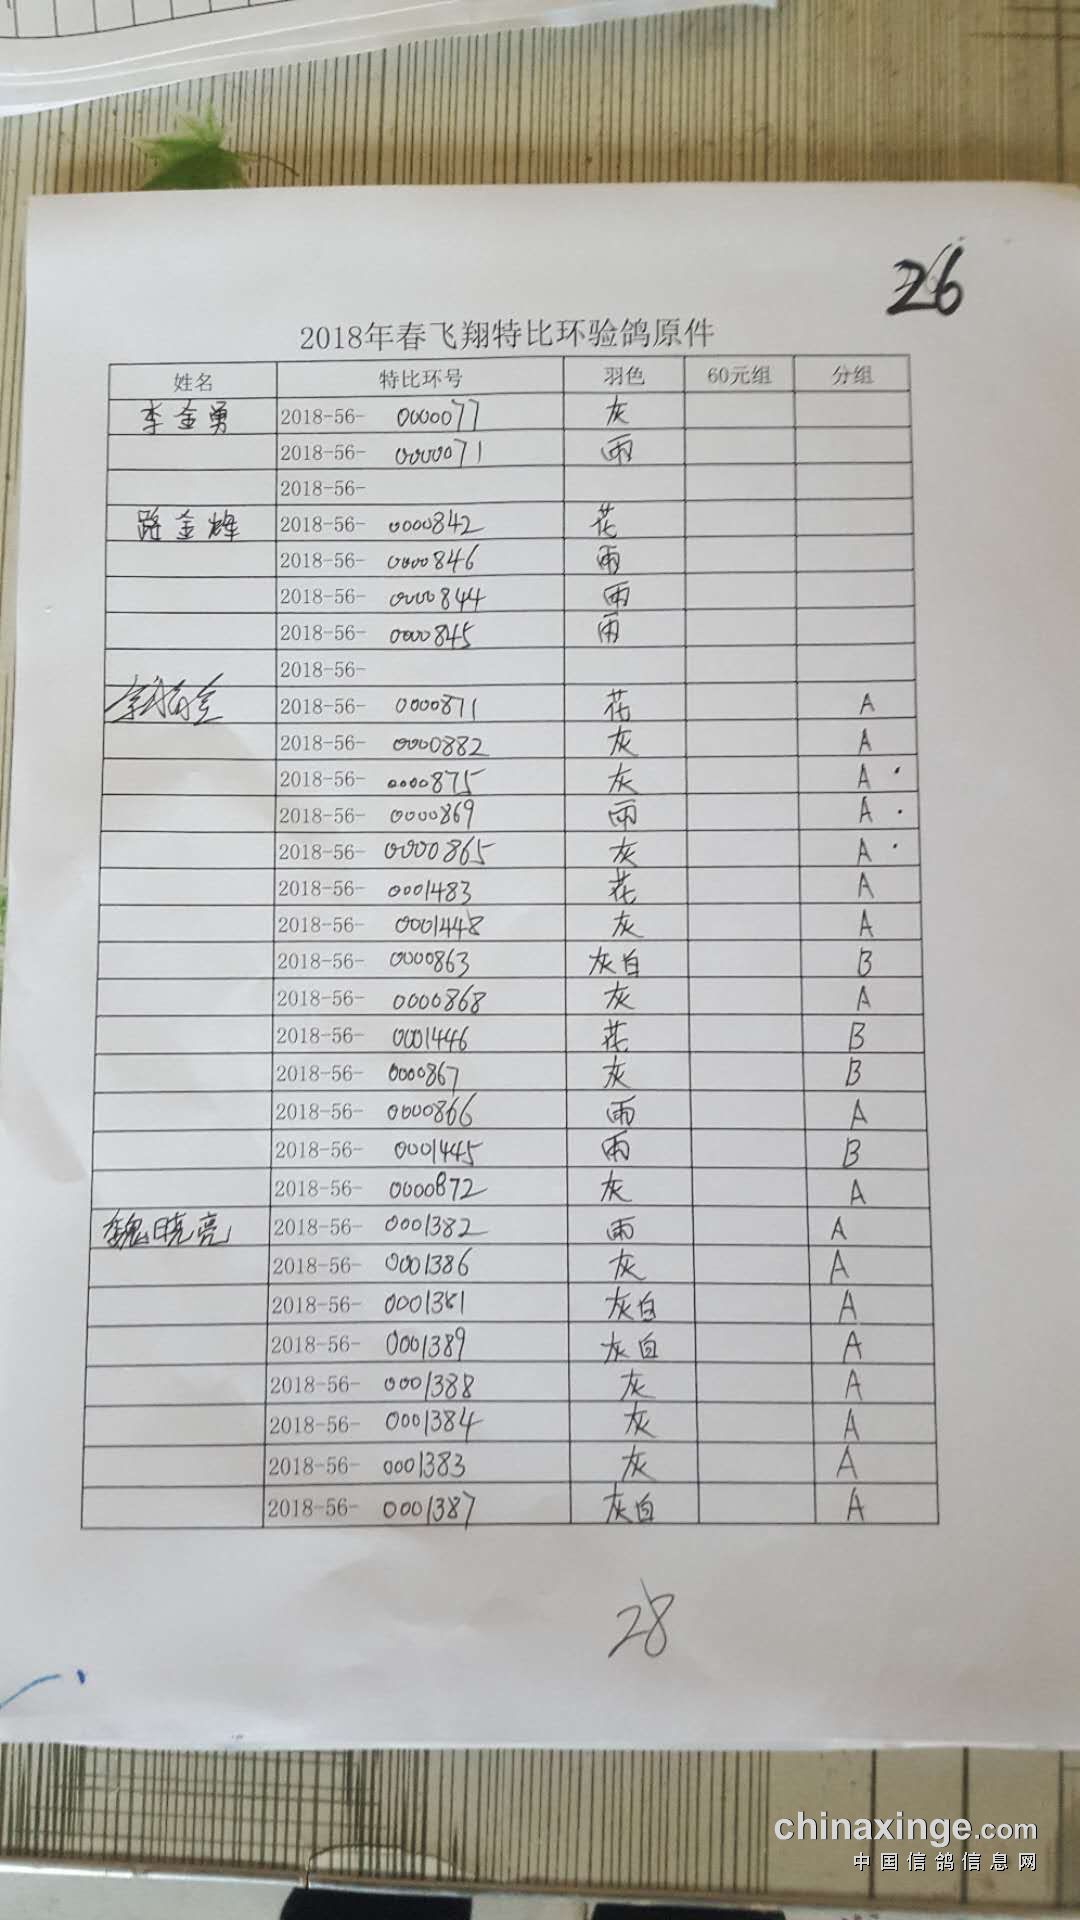 26
2018年春飞翔特比环验鸽原件
姓名 特比环号 羽色 60元组 分组
李金勇 2018-56- 0000077 灰
2018-56- 0000071 雨
2018-56-
路金辉 2018-56- 0000842 花
2018-56- 0000846 雨
2018-56- 0000844 雨
2018-56- 0000845 雨
2018-56-
2018-56- 0000871 花 A
2018-56- 0000882 灰 A
2018-56- 0000875 灰 A
2018-56- 0000869 雨 A
2018-56- 0000865 灰 A
2018-56- 0001483 花 A
2018-56- 0001448 灰 A
2018-56- 0000863 灰白 B
2018-56- 0000868 灰 A
2018-56- 0001446 花 B
2018-56- 0000867 灰 B
2018-56- 0000866 雨 A
2018-56- 0001445 雨 B
2018-56- 0000872 灰 A
魏晓亮 2018-56- 0001382 雨 A
2018-56- 0001386 灰 A
2018-56- 0001381 灰白 A
2018-56- 0001389 灰白 A
2018-56- 0001388 灰 A
2018-56- 0001384 灰 A
2018-56- 0001383 灰 A
2018-56- 0001387 灰白 A
28
chinaxinge.com
中国信鸽信息网